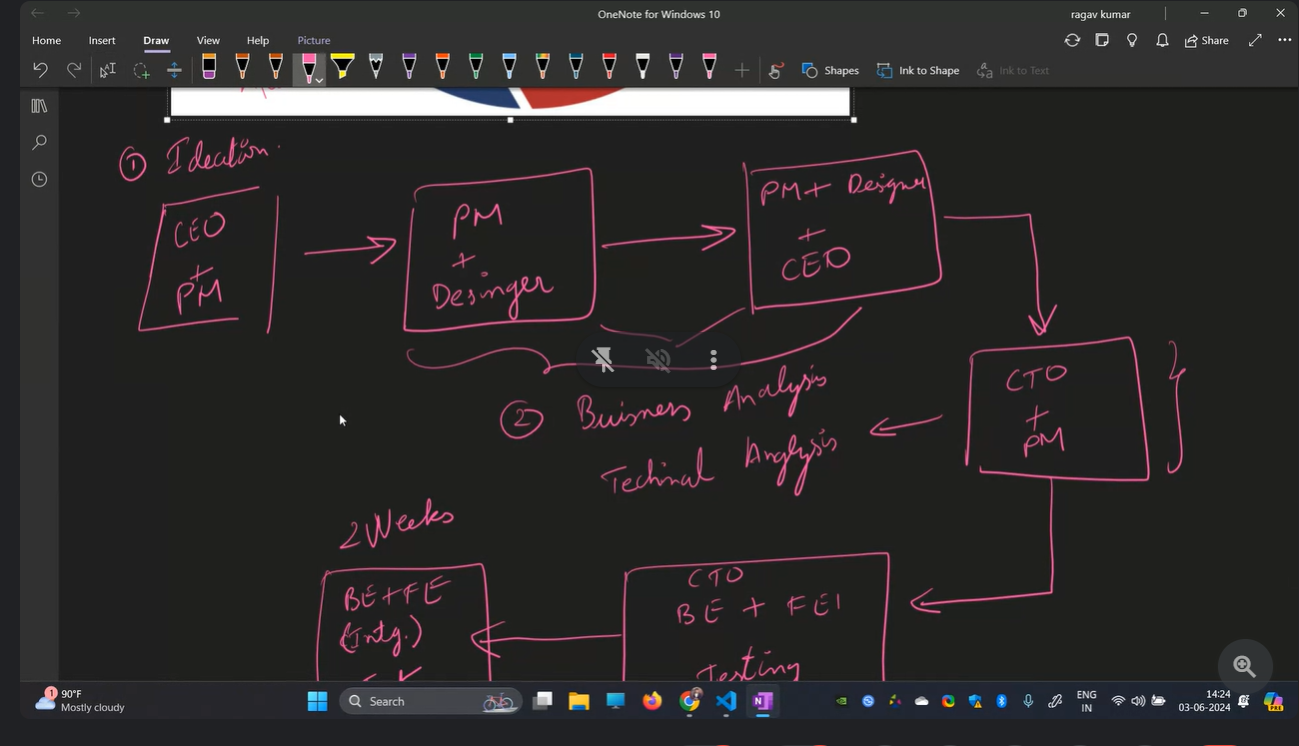 OneNote for Windows 10
ragav kumar
Home Insert Draw View Help Picture
Share
Shapes Ink to Shape Ink to Text
① Ideation.
CEO
+
PM
PM
+
Desinger
PM + Designer
+
CEO
CTO
+
PM
② Buisness Analysis
Techinal Anglysis
2 Weeks
BE+FE
(Intg.)
CTO
BE + FE
Testing
1
90°F
Mostly cloudy
Search
ENG
IN
14:24
03-06-2024
PRE